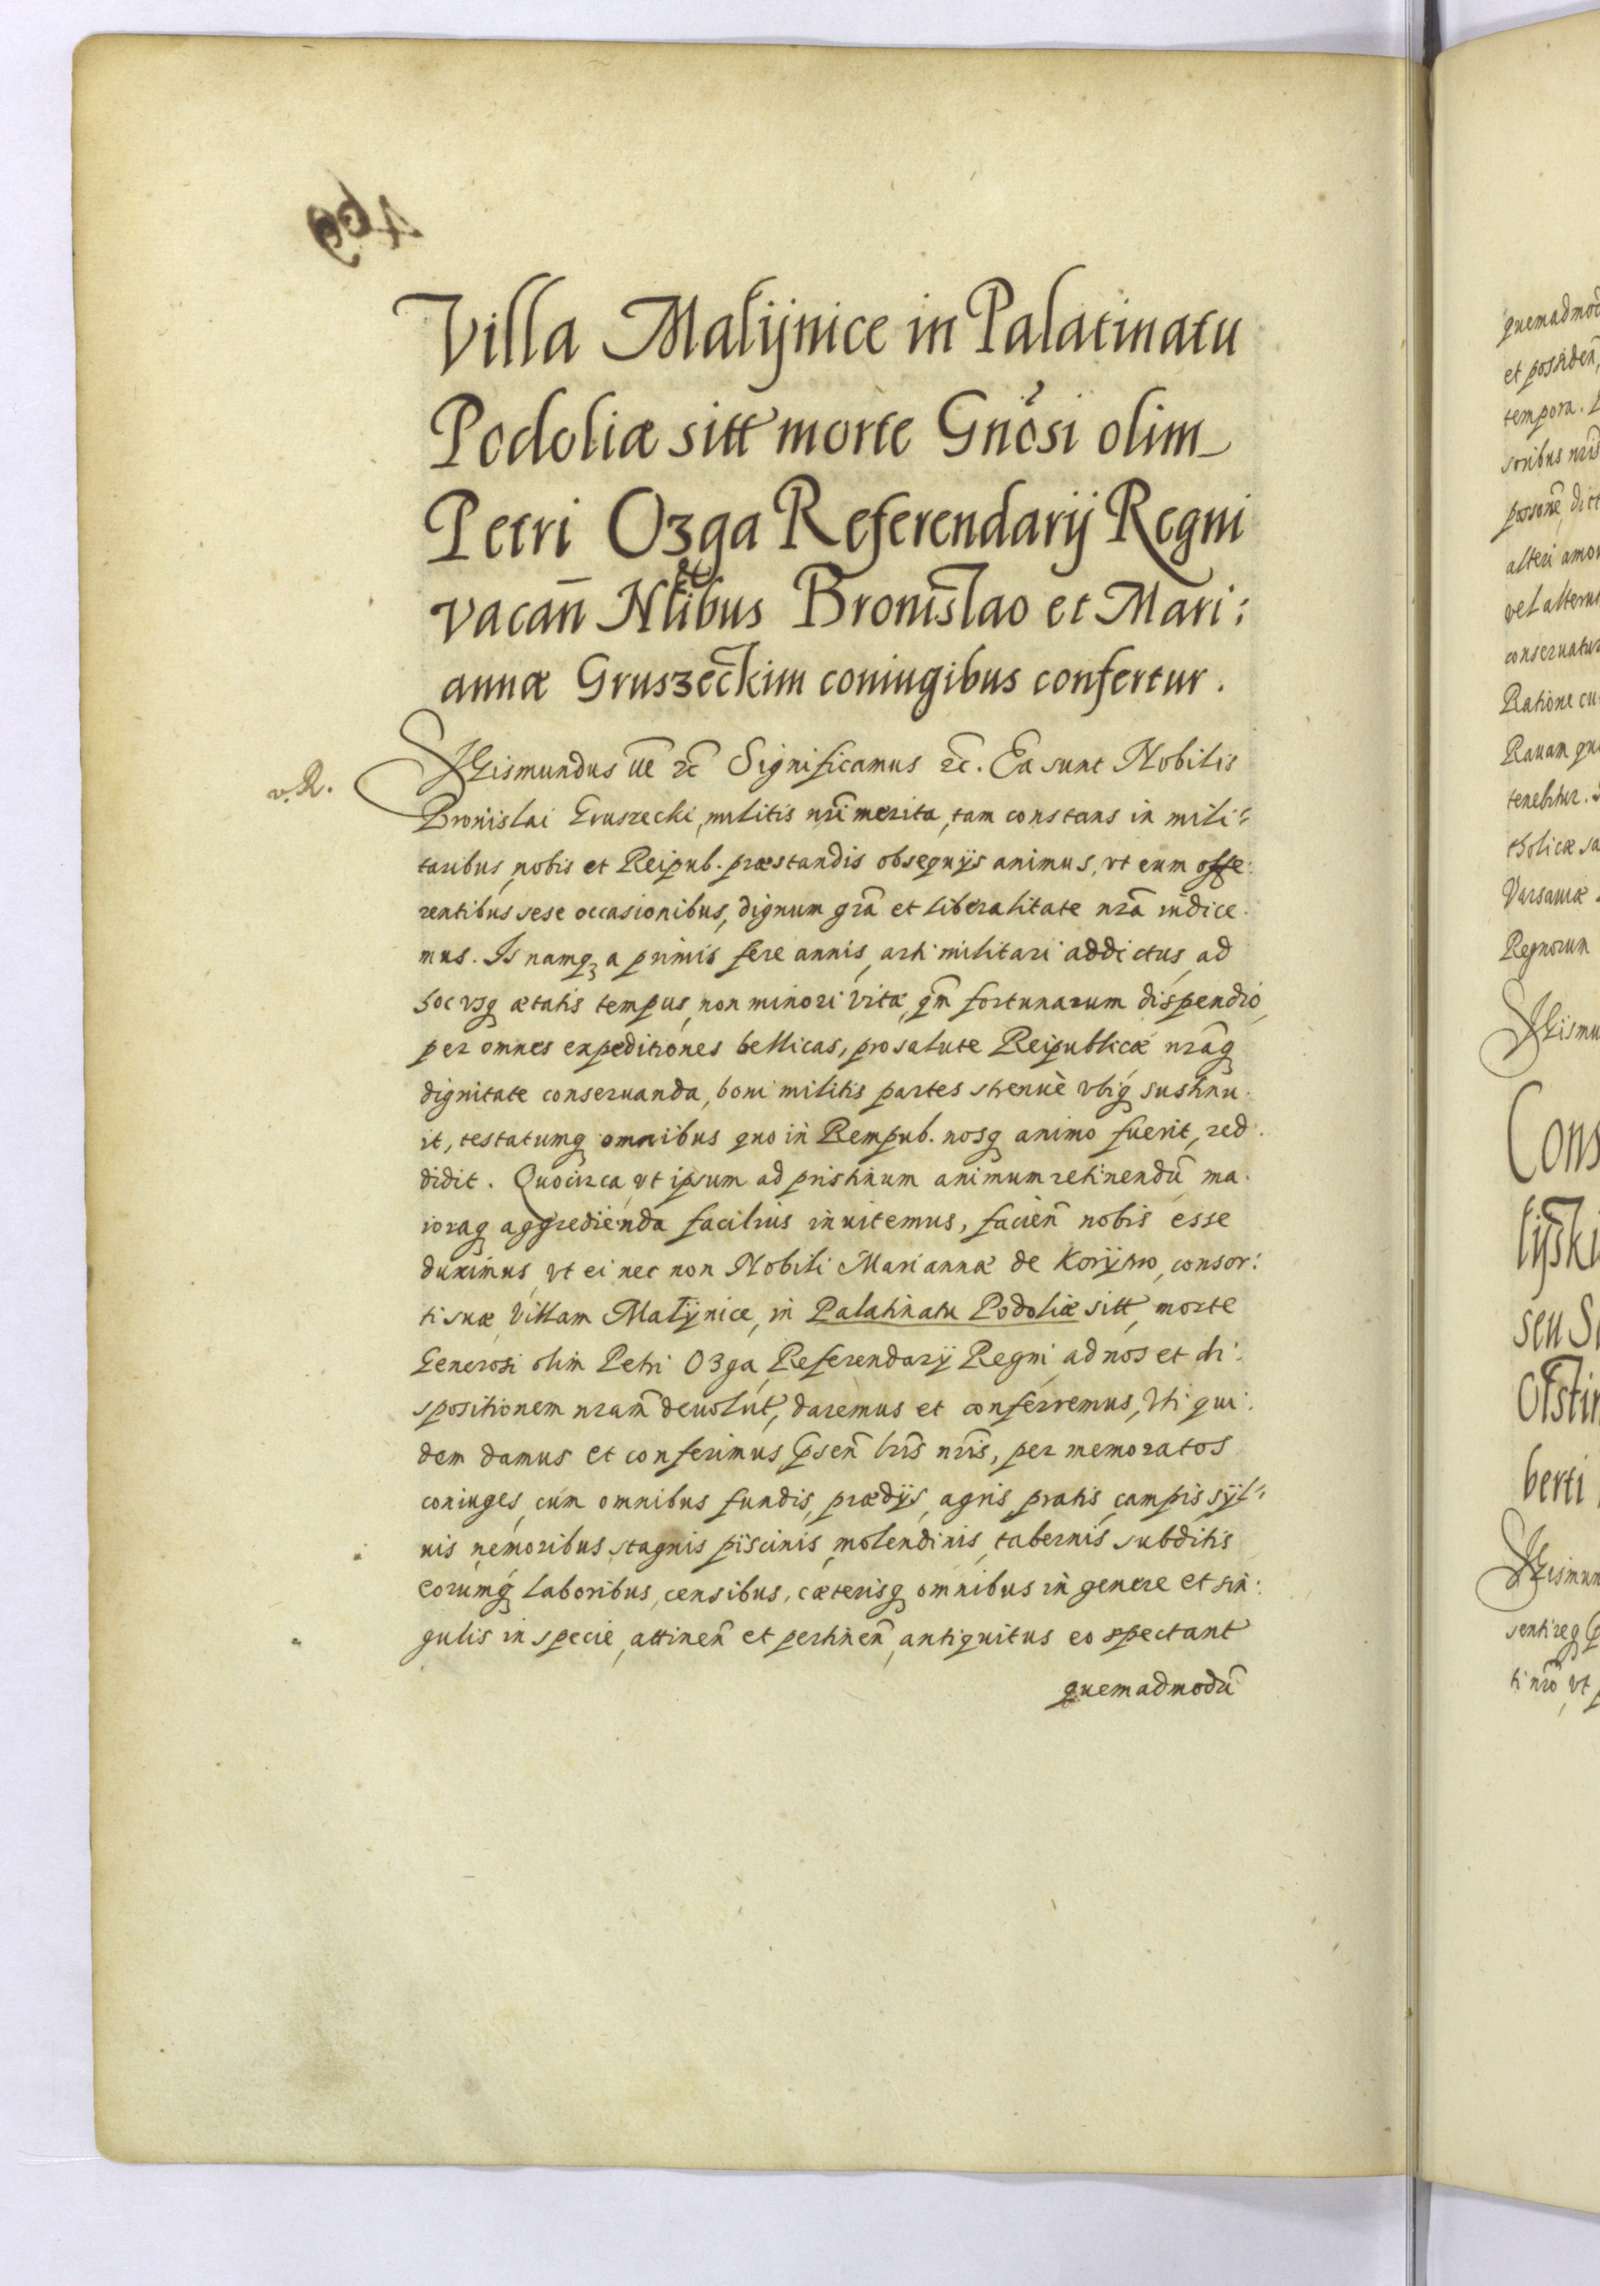 469
Villa Malijnice in Palatinatu
Podoliæ sitt morte Gnōsi olim
Petri Ozga Referendarij Regni
vacan̄ Nlibus Bronislao et Mari:
annæ Gruszeckim coniugibus confertur.
v. R.
Sigismundus
Significamus
Ea sunt Nobilis
Bronislai Gruszecki, militis nr̄i merita, tam constans in mili:
taribus, nobis et Reipub. præstandis obsequijs animus, vt eum offe:
rentibus sese occasionibus, dignum grā et liberalitate nrā iudice:
mus. Is namq, a primis fere annis, arti militari addictus, ad
hoc vsq ætatis tempus, non minori vitæ, qm̄ fortunarum dispendio,
per omnes expeditiones bellicas, pro salute Reipublicæ nrāq
dignitate conseruanda, boni militis partes strenuè vbiq sustinu:
it, testatumq omnibus quo in Rempub. nosq animo fuerit, red:
didit. Quocirca, vt ipsum ad pristinum animum retinendū ma:
ioraq aggredienda facilius inuitemus, facien̄ nobis esse
duximus, vt ei nec non Nobili Mariannæ de consor:
ti suæ, Villam Malijnice, in Palatinatu Podoliæ sitt, morte
Generosi olim Petri Ozga, Referendarij Regni, ad nos et di:
spositionem nram̄ deuolut, daremus et conferremus, Vti qui:
dem damus et conferimus p̄sen̄ lrīs nrīs, per memoratos
coniuges, cum omnibus fundis, prædijs, agris, pratis, campis, syl:
uis, nemoribus, stagnis, piscinis, molendinis, tabernis, subditis
eorumq laboribus, censibus, cæterisq omnibus in genere et sin:
gulis in specie, attinen̄ et pertinen̄, antiquitus eo spectant
quemadmodū
quemadmod
et possiden̄
tempora.
soribus nrīs
possonē, dict
alteri
vel alteru
conseruatur
Ratione cu
Rauam qua
tenebitur.
tholicæ sa
Varsauiæ
Regnorum
Sigismu
Cons
lijski
seu S
berti
Sigismun